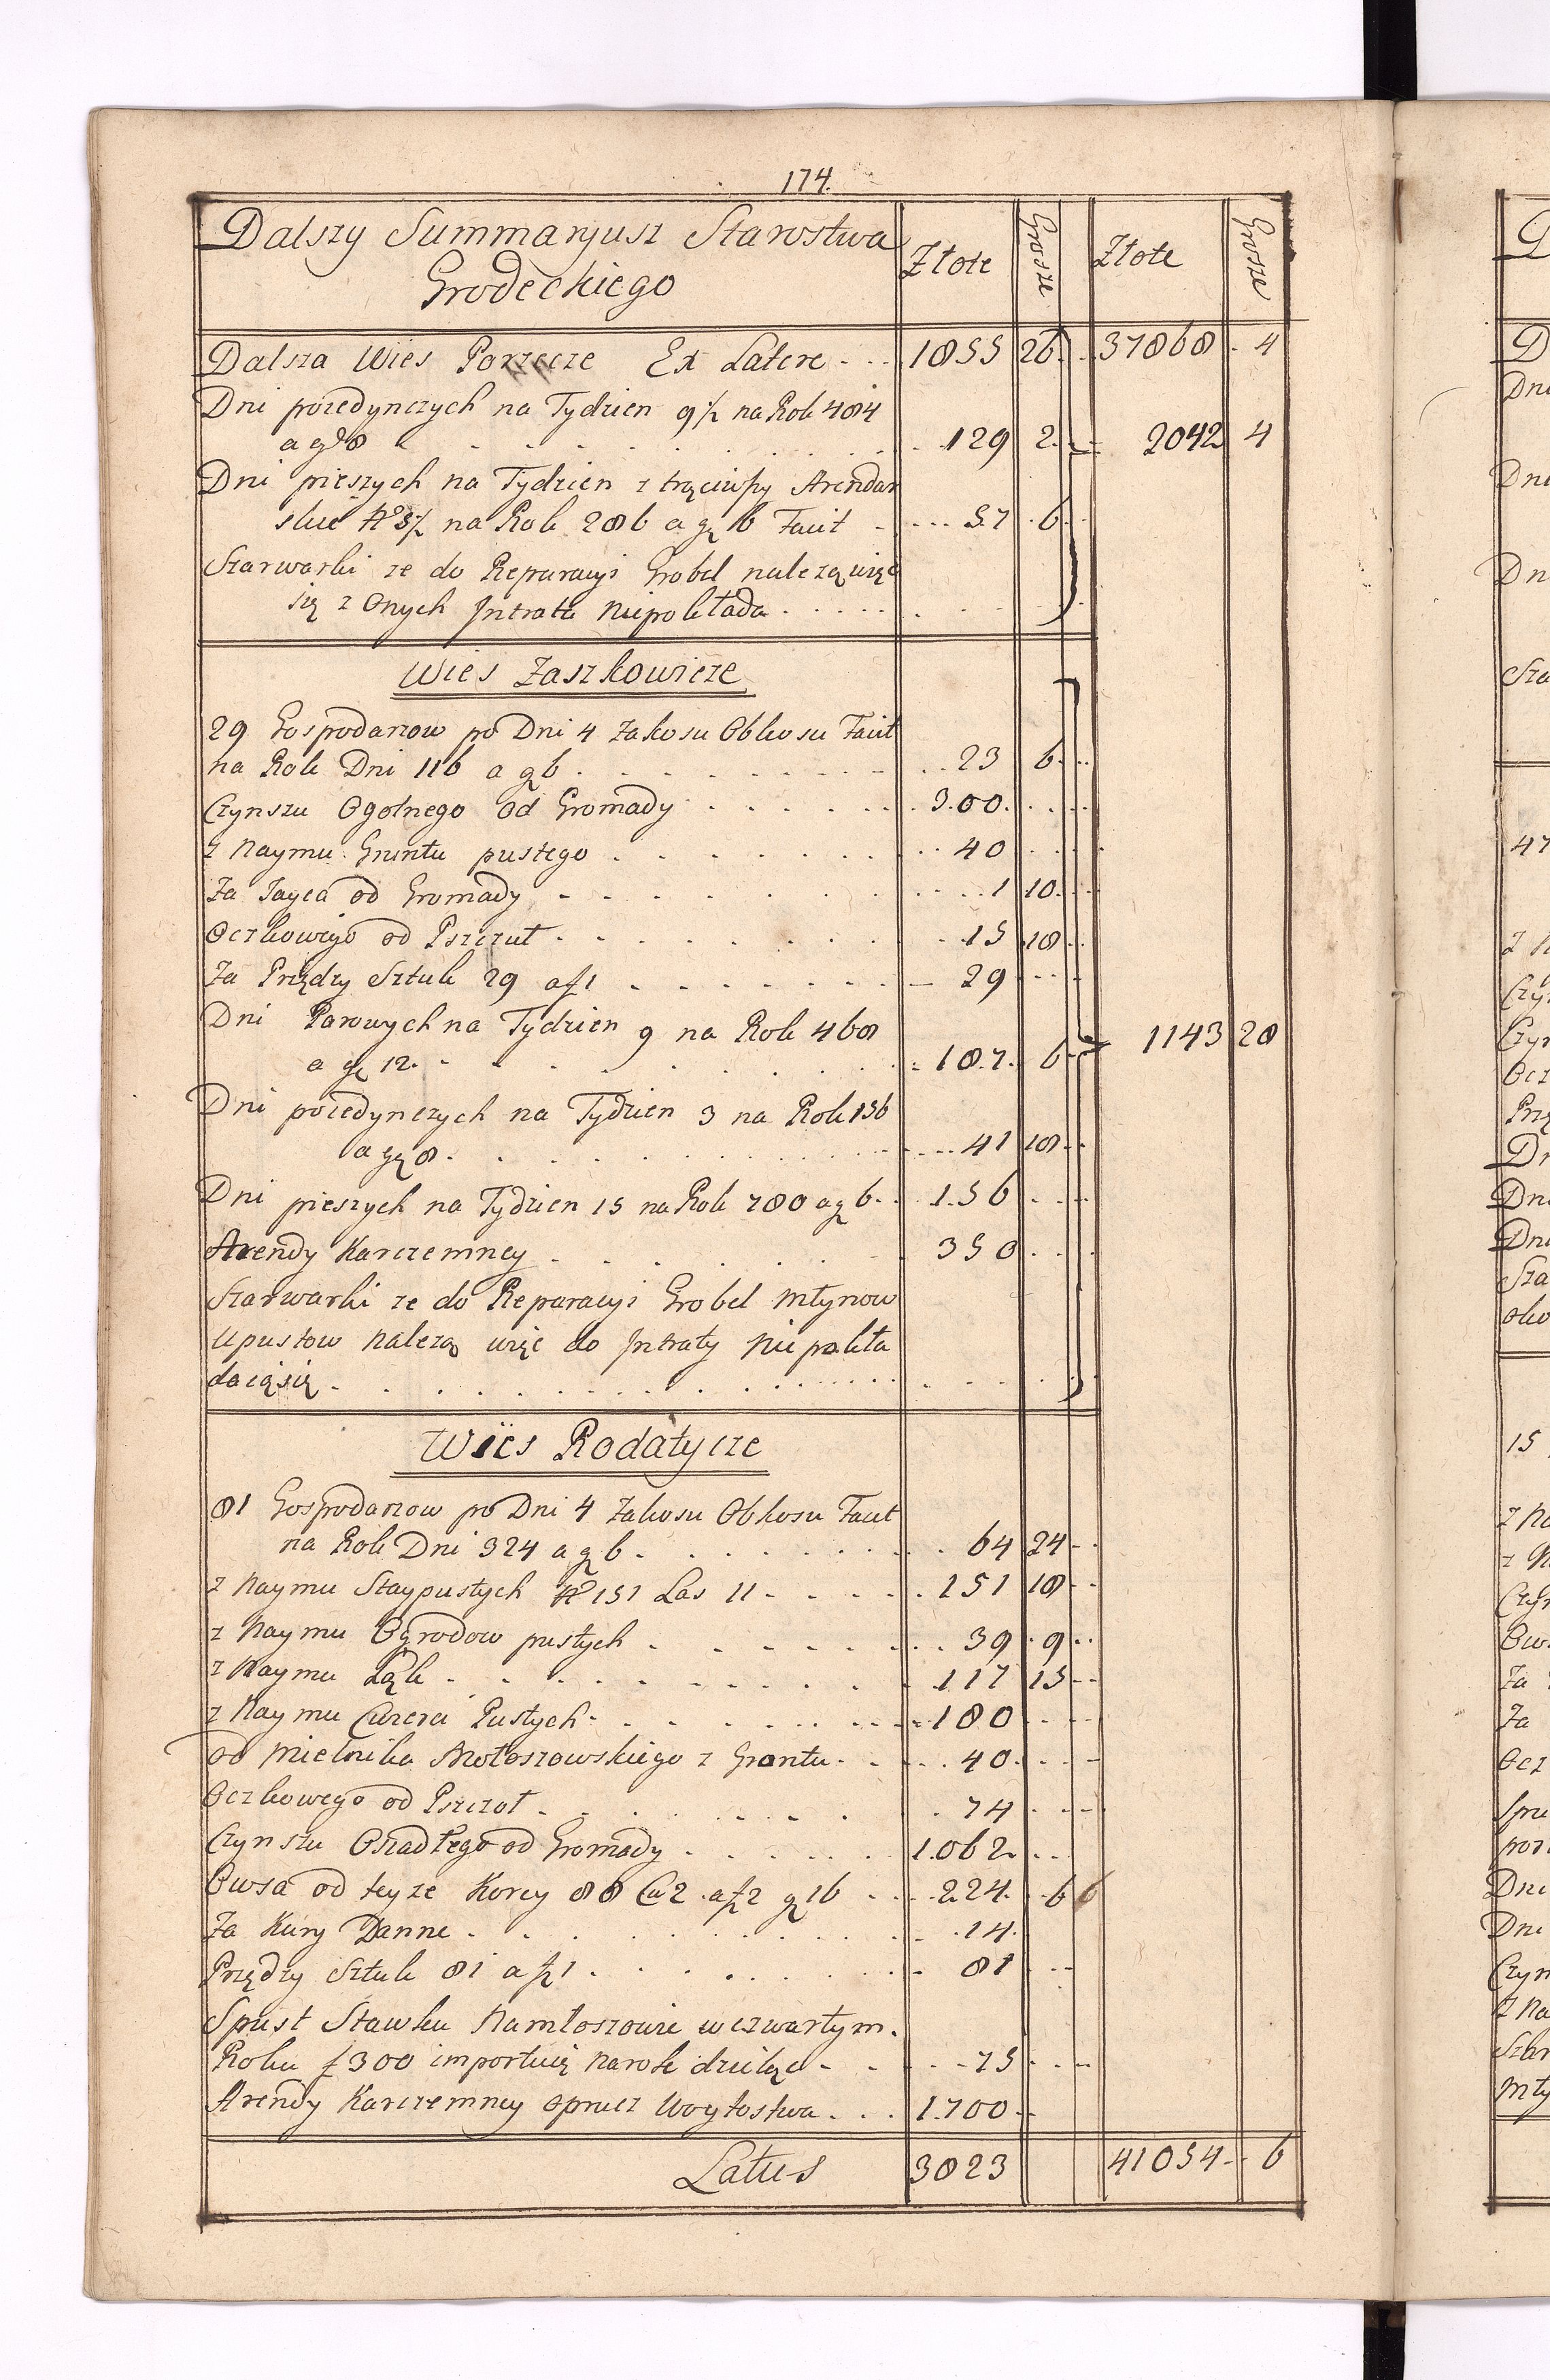 174.
Dalszy Summaryusz Starostwa Złote Grosze Złote Grosze
Grodeckiego
Dalsza Wies Porzecze Ex Latere - - - 1855 26 37868 4
Dni poiedynczych na Tydzien 9½ na Rok 484
a gł 8 129 2 2042 4
Dni pieszych na Tydzien z trzciuszy Arendar
skie No 5½ na Rok 286 a gr 6 Facit - 57 6
Szarwarki ze do Reparacyi Grobel nalezą więc
się z Onych Intrata niepokłada
Wies Zaszkowicze
29 Gospodarzow po Dni 4 Zakosu Obkosu Facit
na Rok Dni 116 a gr 6 23 6
Czynszu Ogolnego od Gromady 300
z Naymu Gruntu pustego 40
Za Jayca od Gromady 1 10
Oczkowego od Pszczuł 15 18
Za Przędzy Sztuk 29 a f 1 29
Dni Parowych na Tydzien 9 na Rok 468
a gr 12 187 6 1143 28
Dni poiedynczych na Tydzien 3 na Rok 156
a gr 8 41 18
Dni pieszych na Tydzien 15 na Rok 780 a gr 6 156
Arendy Karczemney 350
Szarwarki ze do Reparacyi Grobel Młynow
Upustow nalezą więc do Intraty niepokła
daią się
Wies Rodatycze
81 Gospodarzow po Dni 4 Zakosu Obkosu Facit
na Rok Dni 324 a gr 6 64 24
z Naymu Staypustych No 151 Las 11 151 18
z Naymu Ogrodow pustych 39 9
z Naymu Łąk 117 15
z Naymu Cwierci Pustych 180
od Mielnika Mołoszowskiego z Gruntu 40
Oczkowego od Pszczoł 74
Czynszu Osiadłego od Gromady 1062
Owsa od teyze Korcy 88 Cw 2 a f 2 gr 16 224 6
Za Kury Danne 14
Przędzy Sztuk 81 a f 1 81
Spust Stawku Namłoszowie w czwartym
Roku f 300 importuię na rok dzieląc 75
Arendy Karczemney oprucz Woytostwa 1700
Latus 3823 41054 6